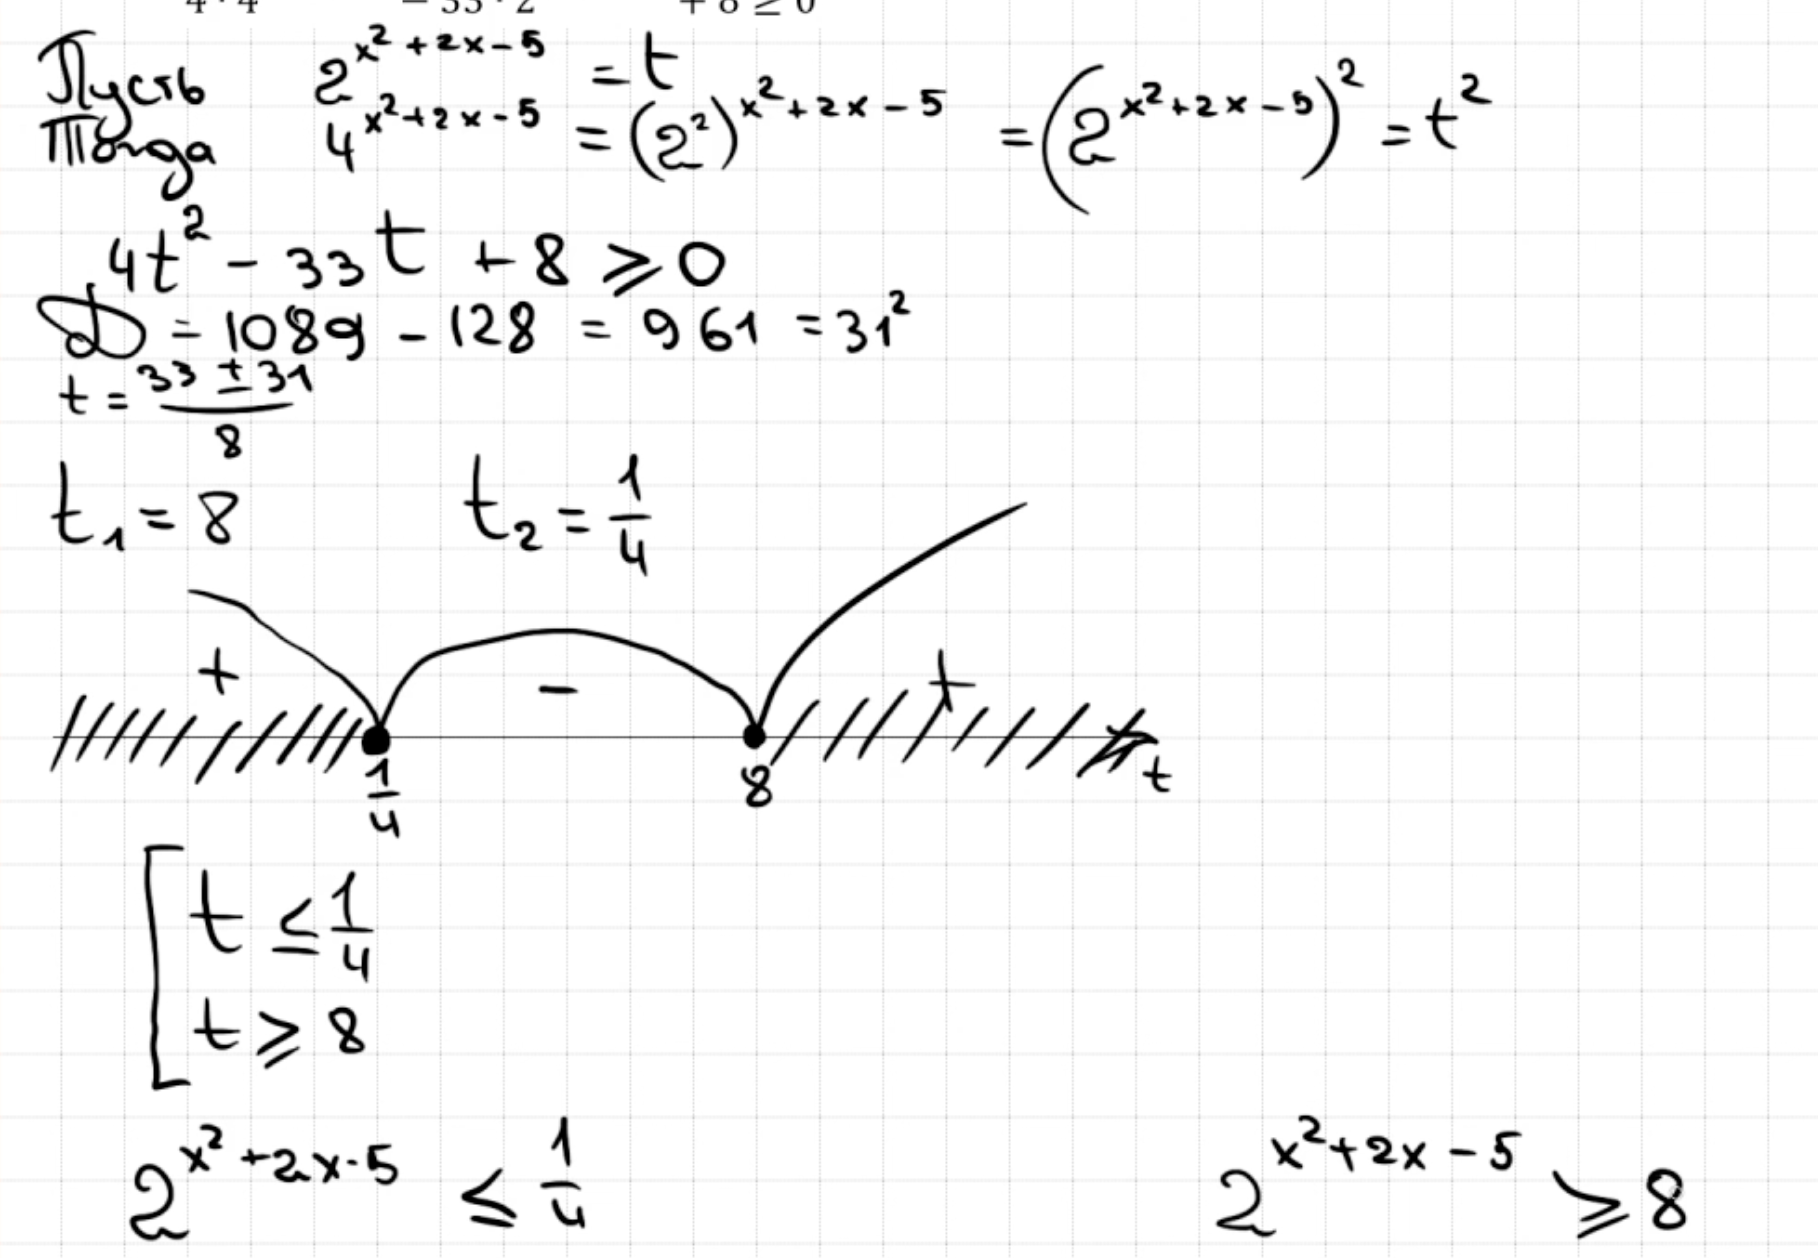 4 · 4 − 33 · 2 + 8 ≥ 0
Пусть 2^{x²+2x−5} = t
Тогда 4^{x²+2x−5} = (2²)^{x²+2x−5} = (2^{x²+2x−5})² = t²
4t² − 33t + 8 ⩾ 0
D = 1089 − 128 = 961 = 31²
t = (33 ± 31)/8
t₁ = 8 t₂ = 1/4
+ − +
1/4 8 t
[ t ≤ 1/4
t ⩾ 8
2^{x²+2x−5} ≤ 1/4 2^{x²+2x−5} ⩾ 8